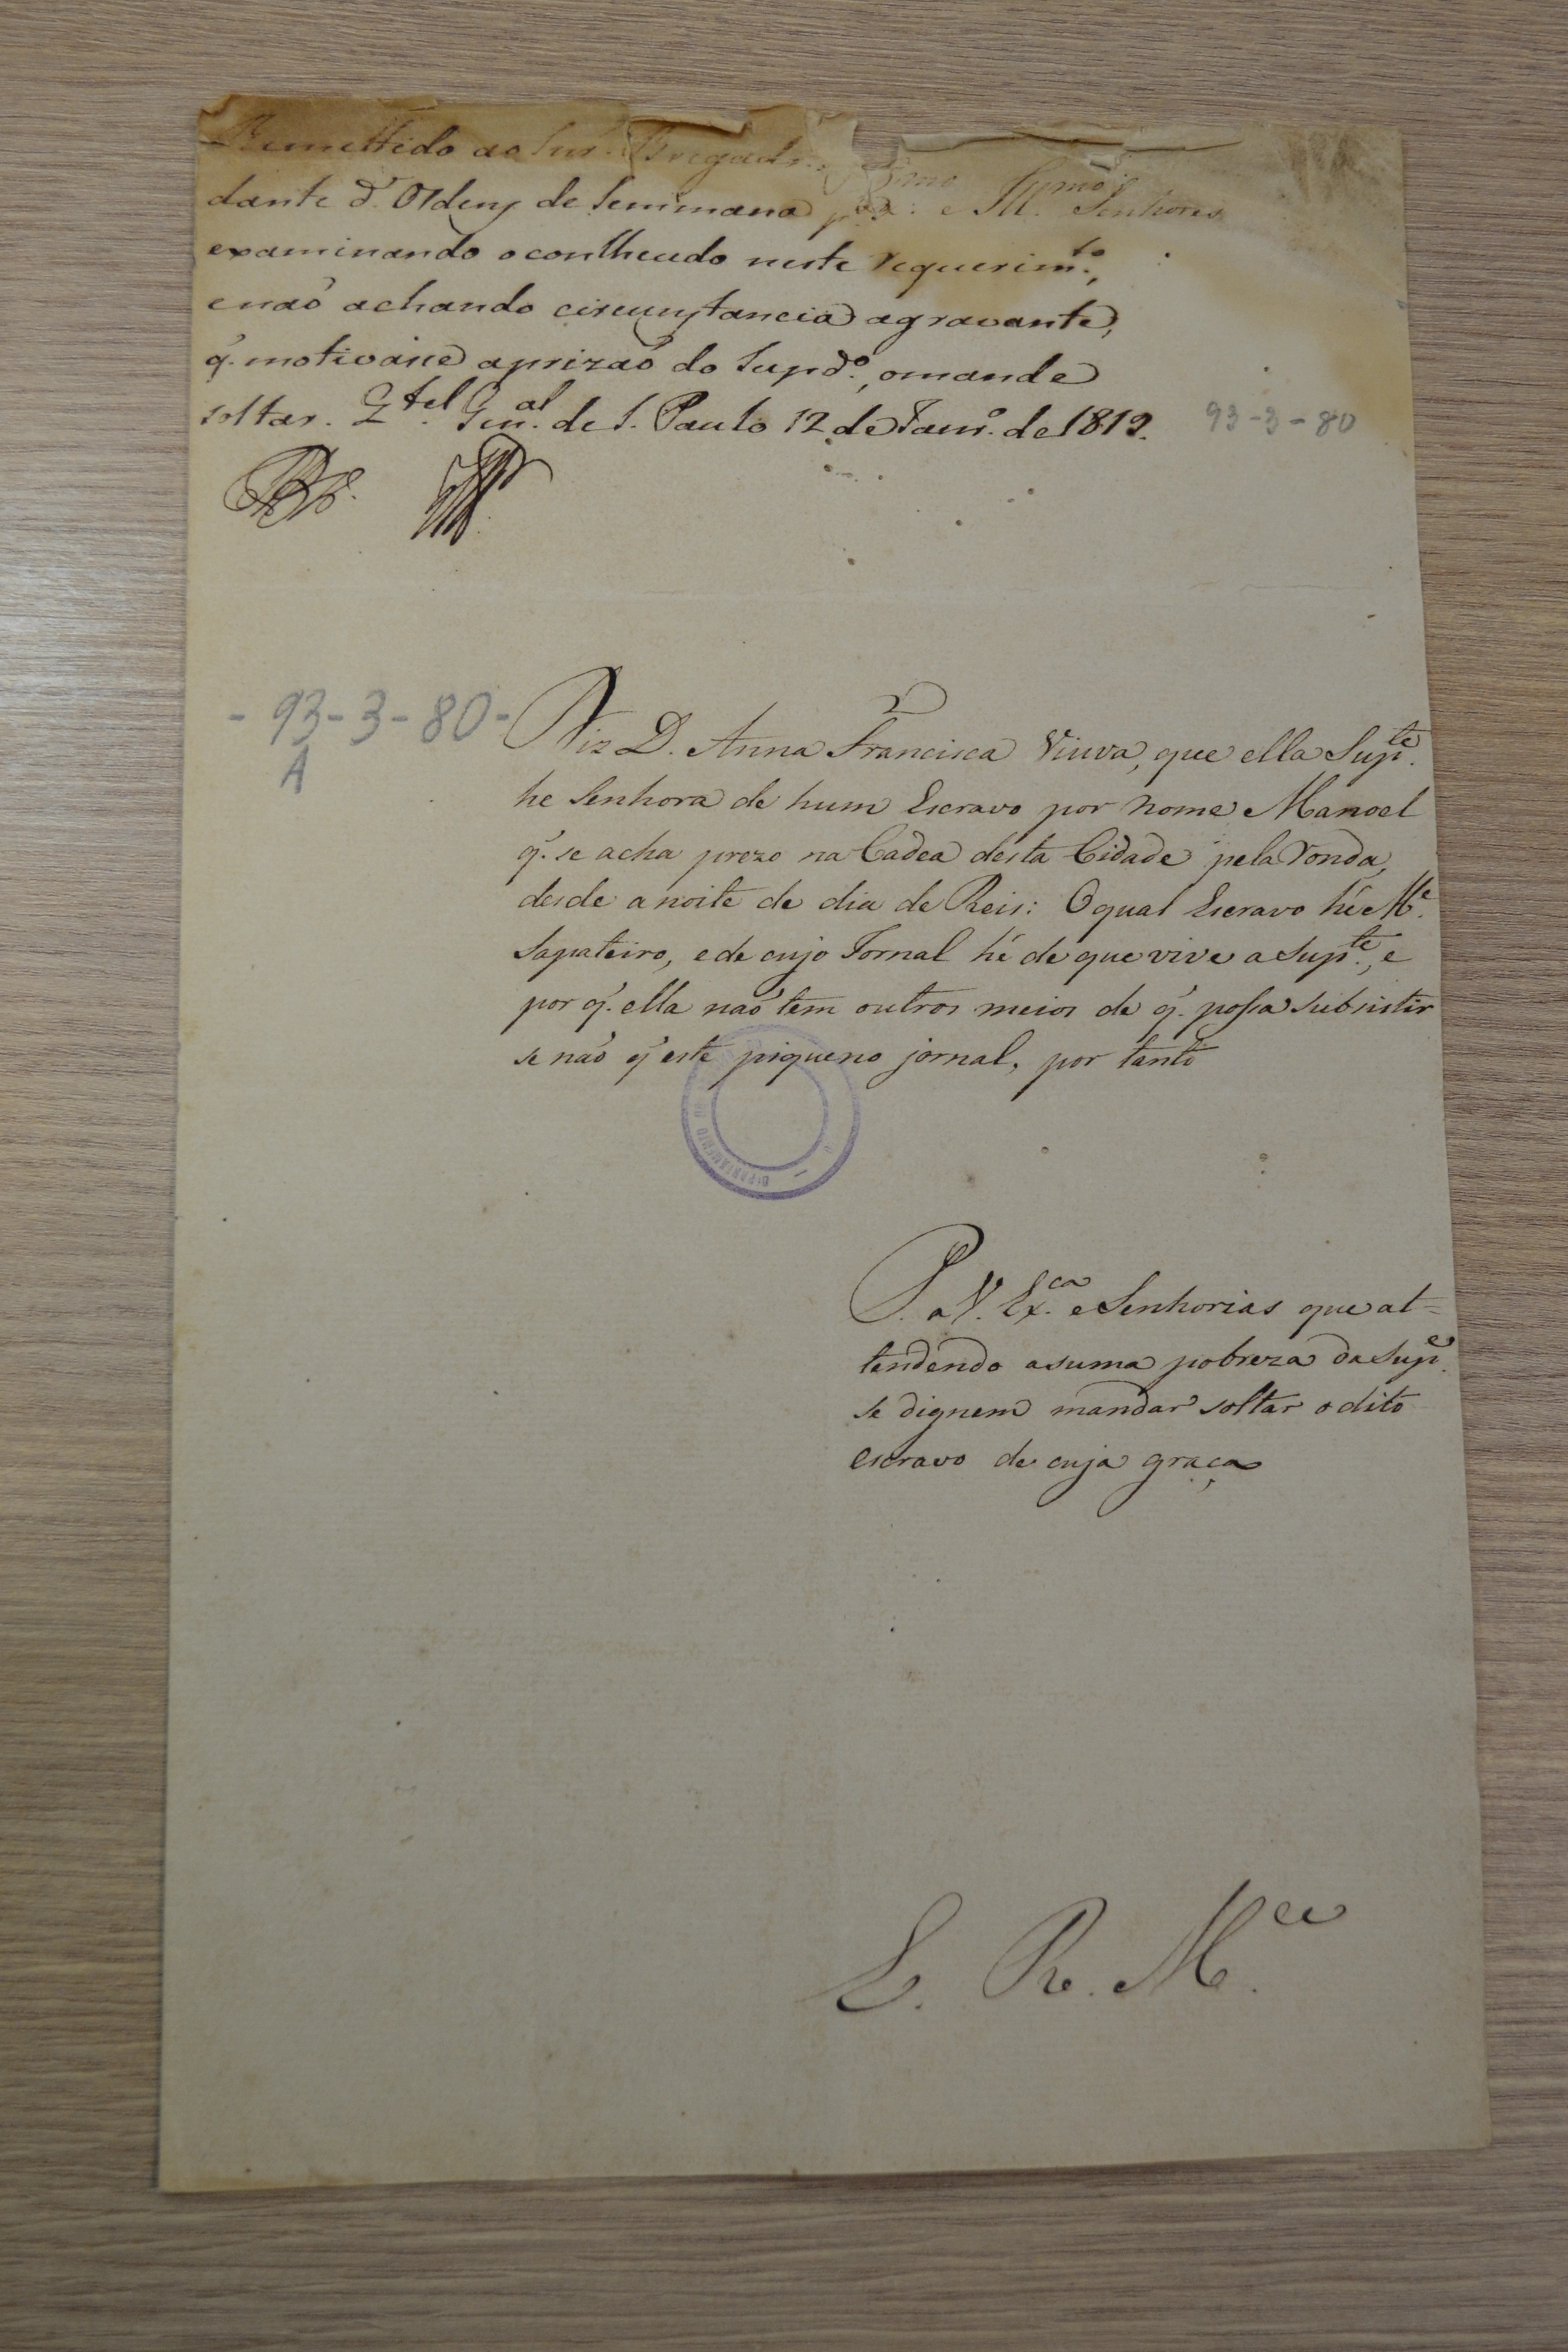 Remettido ao Snr. Brigadr.
Exmo. e Ill.mos Senhores
dante d'Ordens de Semmana p.a
examinando o contheudo neste requerim.to,
e naõ achando circunstancia agravante,
q̃. motivasse a prizaõ do Supd.o, o mande
soltar. Q.tel Gen.al de S. Paulo 12 de Jan.o de 1819.
93-3-80
- 93-3-80 -
A
Diz D. Anna Francisca Viuva, que ella Sup.te
he Senhora de hum Escravo por nome Manoel
q̃. se acha prezo na Cadea desta Cidade pela ronda,
desde a noite de dia de Reis: O qual Escravo hé M.e
Sapateiro, e de cujo Jornal hé de que vive a Sup.te, e
por q̃. ella naõ tem outros meios de q̃. possa subsistir
se naõ q̃ este piqueno jornal, por tanto
DEPARTAMENTO DO
P. a V. Ex.ca e Senhorias que at=
tendendo a suma pobreza da Sup.e
se dignem mandar soltar o dito
escravo de cuja graça
E. R. M.ce